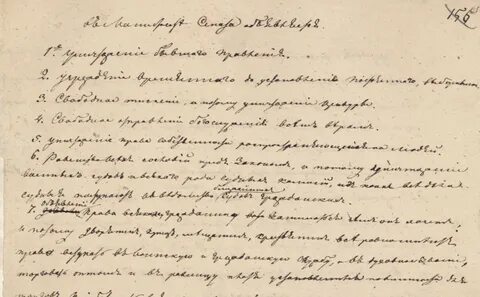 156
въ Манифестѣ Сената объявляется
1. уничтоженіе бывшаго правленія.
2. учрежденіе временнаго до установленія постояннаго, выборными.
3. Свободное тисненіе, и потому уничтоженіе цензуры.
4. Свободное отправленіе богослуженія всѣмъ вѣрамъ.
5. уничтоженіе права собственности распространяющейся на людей.
6. Равенство всѣхъ сословій предъ Закономъ, и потому уничтоженіе
военныхъ судовъ и всякаго рода судныхъ комиссій, изъ коихъ всѣ дѣла
судныя поступаютъ въ вѣдомства ближайшихъ судовъ гражданскихъ.
7. объявленіе права всякому гражданину заниматься чѣмъ онъ хочетъ
и потому дворянинъ, купецъ, мѣщанинъ, крестьянинъ все равно имѣютъ
право вступать въ воинскую и гражданскую службу и въ духовное званіе,
торговать оптомъ и въ розницу платя установленныя повинности для
торговъ